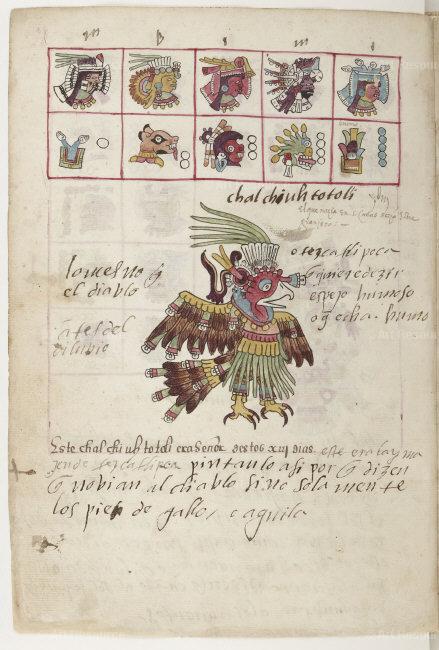 m b i m i
chalchiuhtotoli
o tezcatlipoca
q quiere dezir
espejo humoso
o q echa humo
lo mesmo q
el diablo
antes del
dilubio
Este chalchiuhtotoli era Señor destos xiij dias. este era la
tezcatlipoca pintanlo asi por q dizen
q no bian al diablo sino solamente
los pies de gallo, o aguila